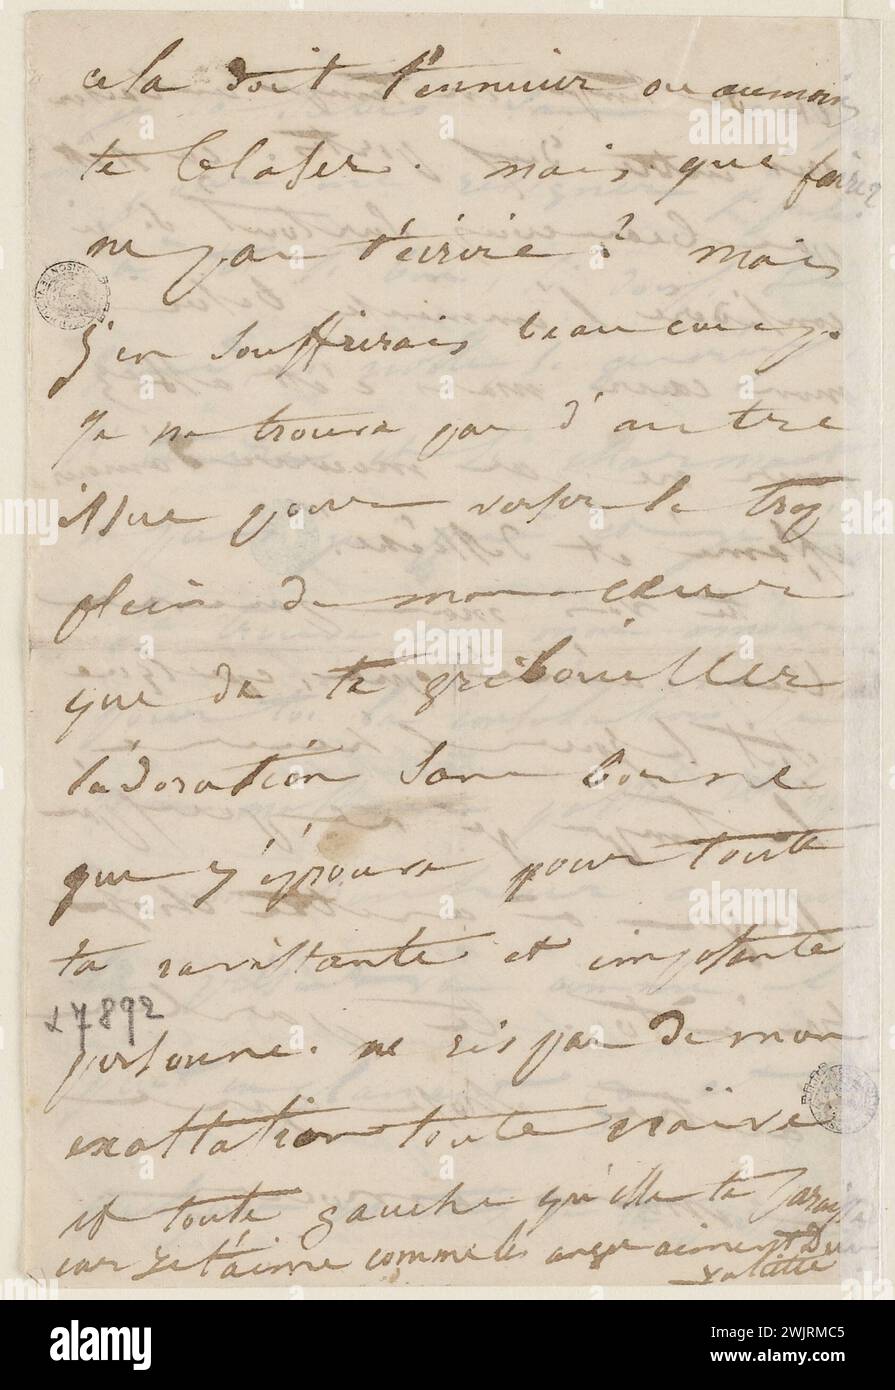 cela doit t'ennuier ou au moins
te blaser. mais que faire
ne pas t'écrire? mais
j'en souffrirais beaucoup.
Je ne trouve pas d'autre
issue pour verser le trop
plein de mon cœur
que de te gribouiller
l'adoration sans borne
que j'éprouve pour toute
ta ravissante et imposante
personne. ne ris pas de mon
exaltation toute naïve
et toute gauche qu'elle te paraisse
car je t'aime comme les anges aiment Dieu
Juliette
7892
alamy
Image ID: 2WJRMC5
www.alamy.com